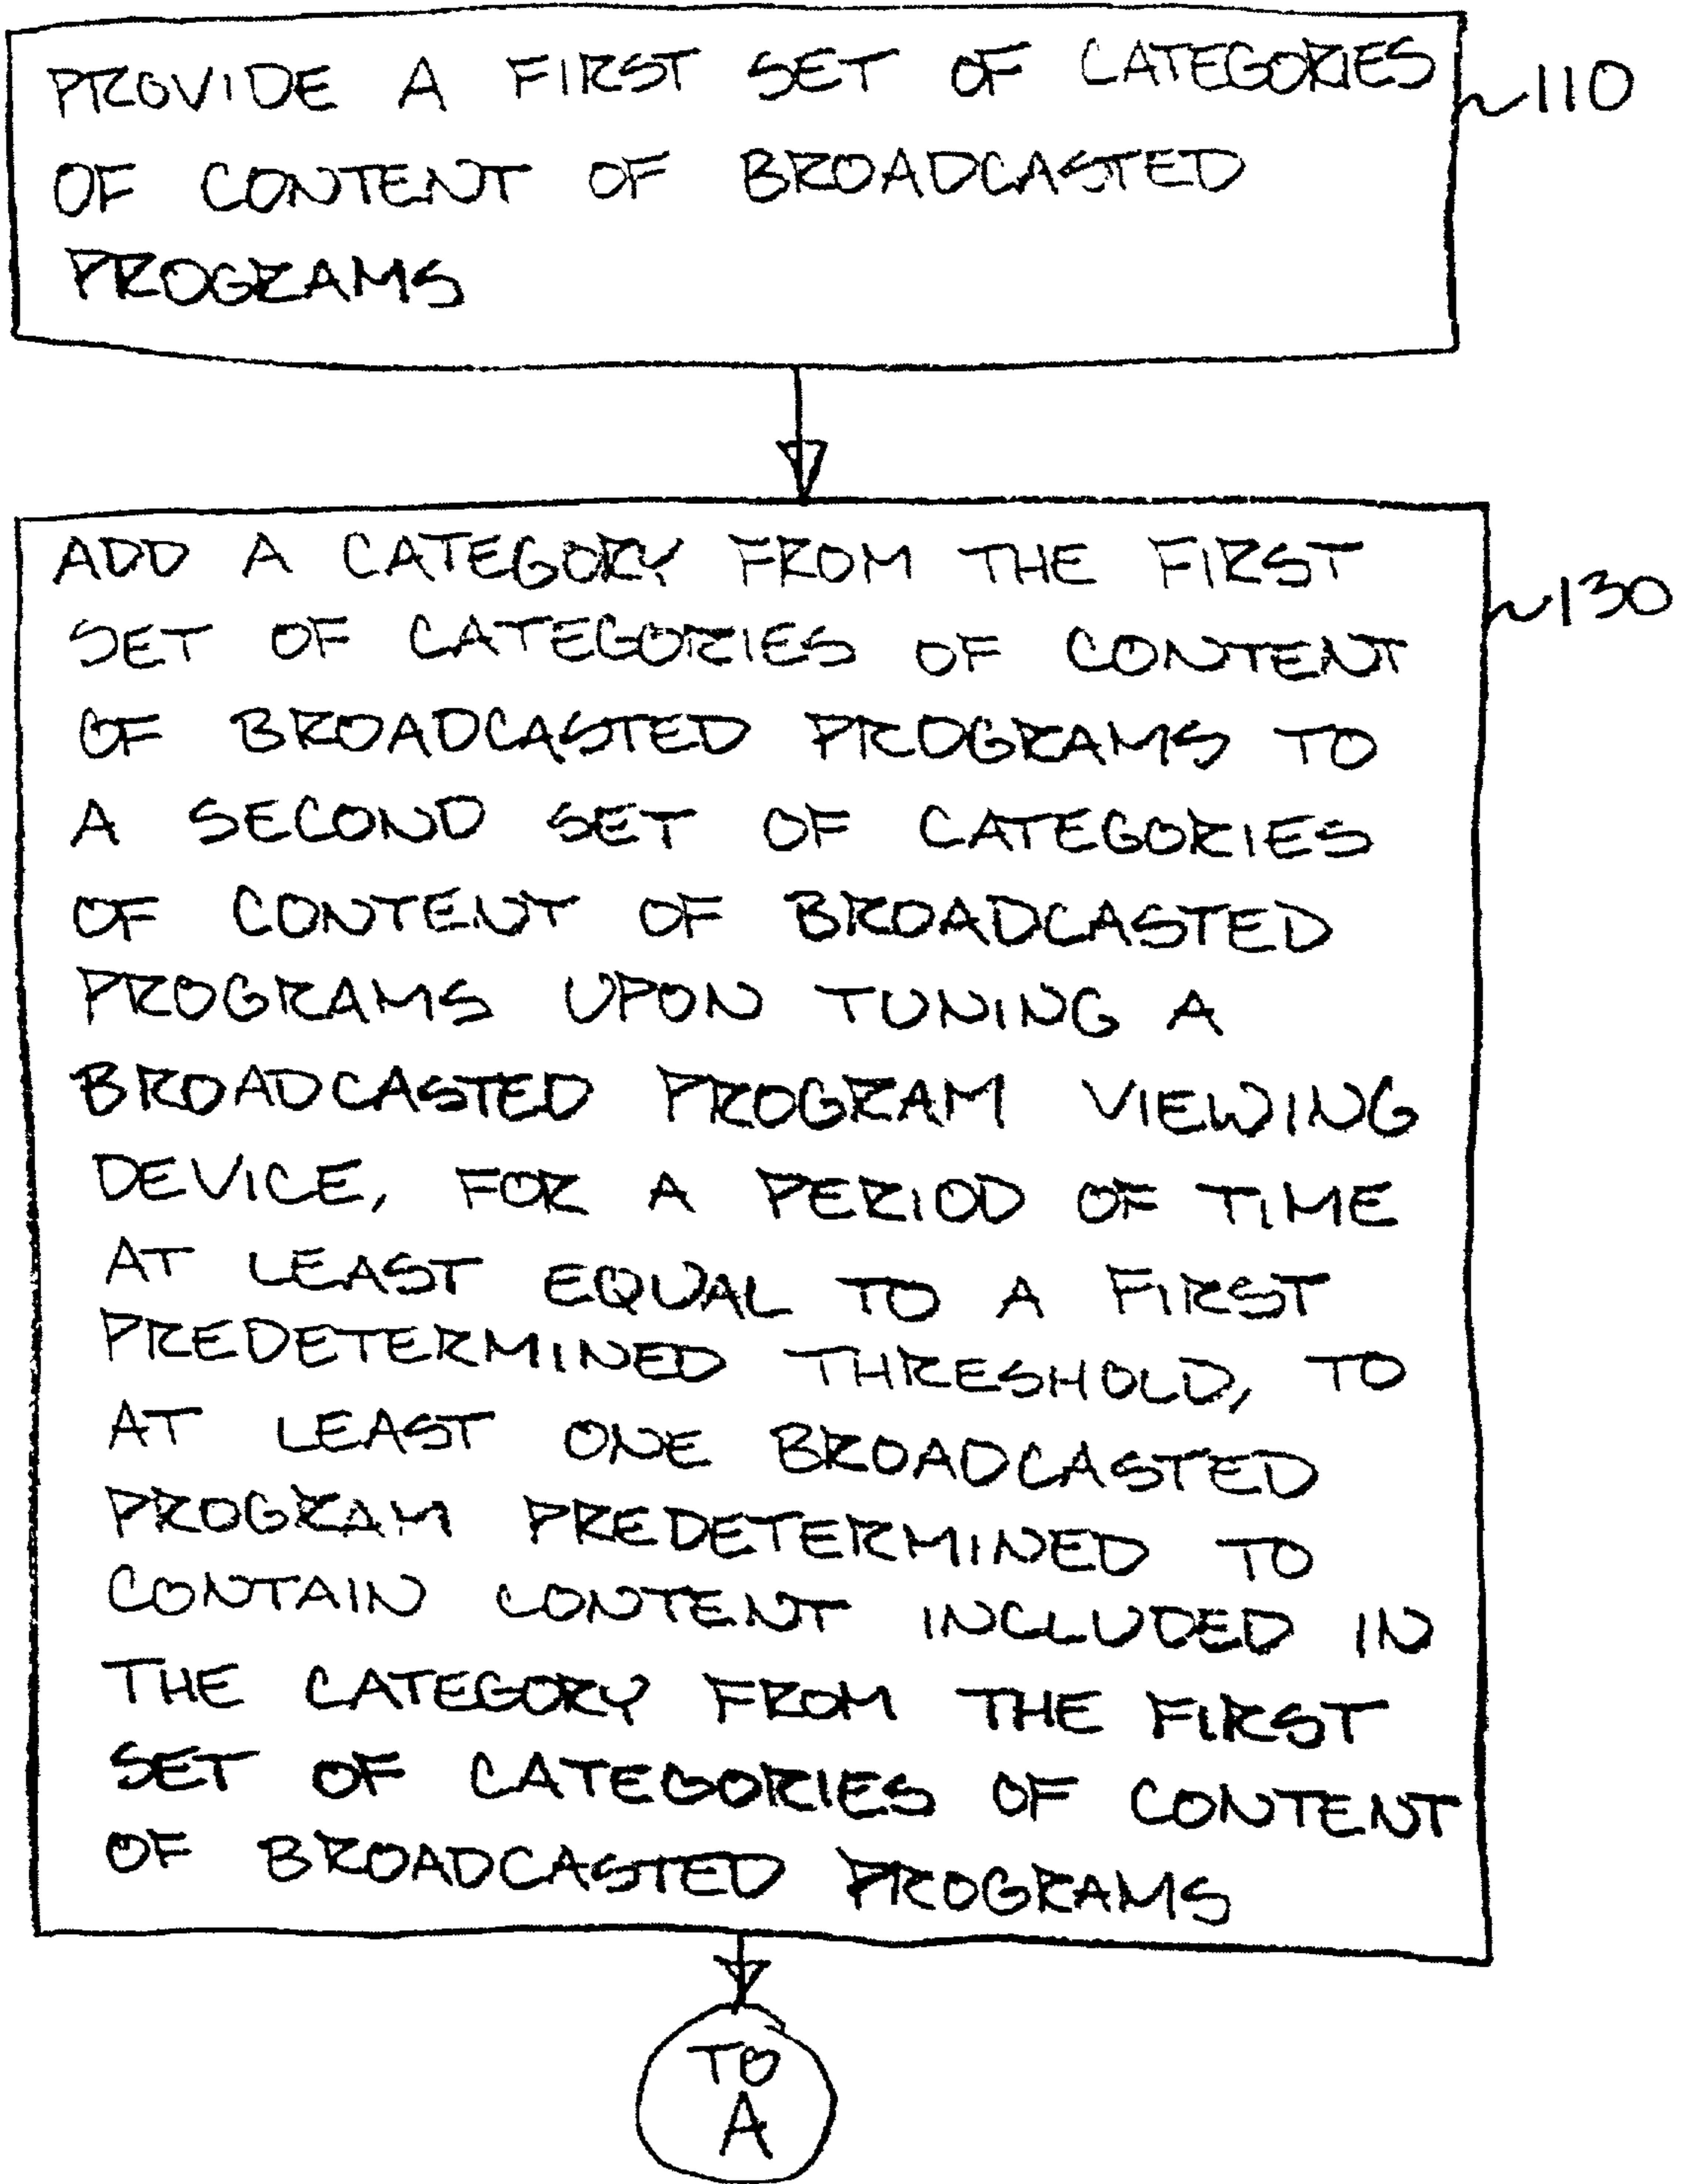 PROVIDE A FIRST SET OF CATEGORIES
110
OF CONTENT OF BROADCASTED
PROGRAMS
ADD A CATEGORY FROM THE FIRST
130
SET OF CATEGORIES OF CONTENT
OF BROADCASTED PROGRAMS TO
A SECOND SET OF CATEGORIES
OF CONTENT OF BROADCASTED
PROGRAMS UPON TUNING A
BROADCASTED PROGRAM VIEWING
DEVICE, FOR A PERIOD OF TIME
AT LEAST EQUAL TO A FIRST
PREDETERMINED THRESHOLD, TO
AT LEAST ONE BROADCASTED
PROGRAM PREDETERMINED TO
CONTAIN CONTENT INCLUDED IN
THE CATEGORY FROM THE FIRST
SET OF CATEGORIES OF CONTENT
OF BROADCASTED PROGRAMS
TO
A